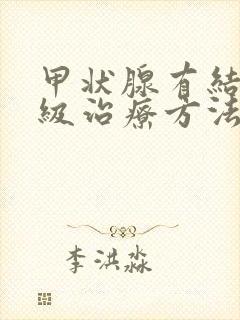 甲状腺有結
級治療方法
李洪淼